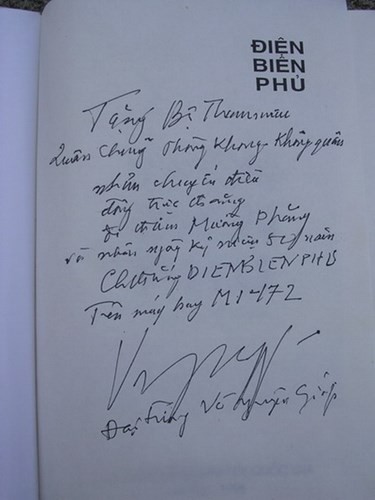 ĐIỆN
BIÊN
PHỦ
Tặng Bộ Tham mưu
Quân chủng Phòng Không - Không quân
nhân chuyến
đồng trực thăng
đi thăm Mường Phăng
và nhân ngày kỷ niệm 50 năm
Ch thắng DIENBIENPHU
Trên máy bay MI-472
Đại tướng Võ Nguyên Giáp